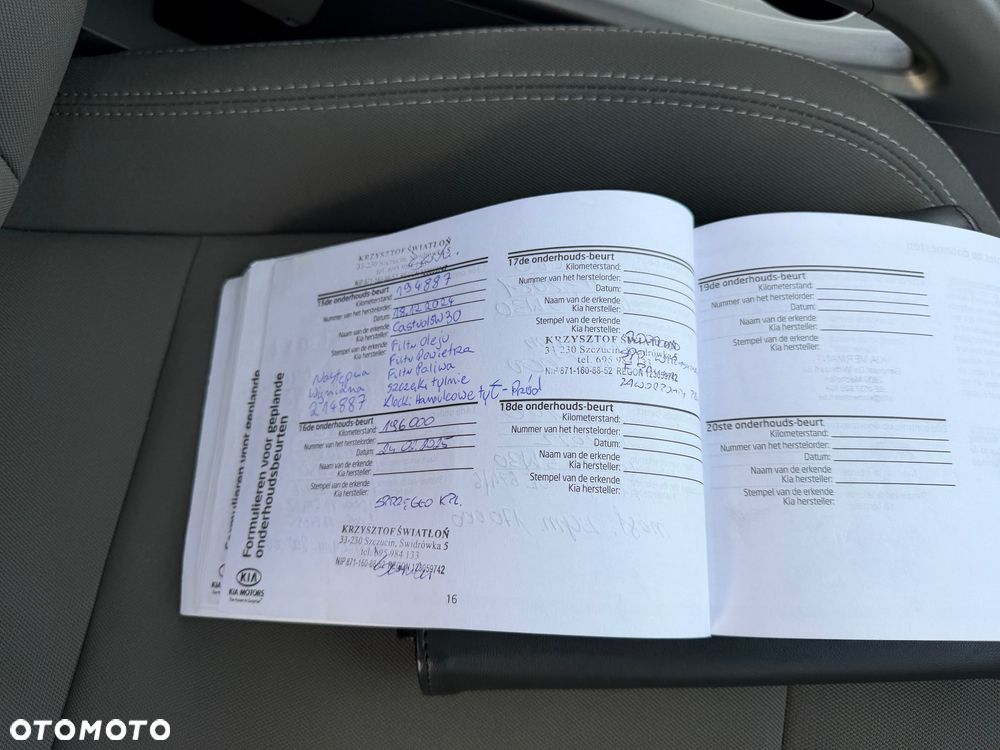 Formulieren voor geplande
Formulieren voor geplande
onderhoudsbeurten
KIA
KIA MOTORS
KRZYSZTOF ŚWIATŁOŃ
33-230 Szczucin, Świdrówka 5
15de onderhouds-beurt
Kilometerstand: 194887
Nummer van het hersteloorder:
Datum: 18.12.2024
Naam van de erkende Castrol 5W30
Kia hersteller:
Stempel van de erkende Filtr Oleju
Kia hersteller: Filtr Powietrza
Filtr Paliwa
Następna
Wymiana
214887
Szczęki tylnie
Klocki Hamulcowe tył - Przód
16de onderhouds-beurt
Kilometerstand: 196000
Nummer van het herstelorder:
Datum: 24.02.2025
Naam van de erkende
Kia hersteller:
Stempel van de erkende
Kia hersteller:
SPRZĘGŁO KPL.
KRZYSZTOF ŚWIATŁOŃ
33-230 Szczucin, Świdrówka 5
tel. 695 984 133
NIP 871-160-88-52 REGON 123059742
16
17de onderhouds-beurt
Kilometerstand:
Nummer van het herstelorder:
Datum:
Naam van de erkende
Kia hersteller:
Stempel van de erkende
Kia hersteller:
KRZYSZTOF
33-230 Szczucin, Świdrówka 5
tel. 695
NIP 871-160-88-52 REGON 123059742
18de onderhouds-beurt
Kilometerstand:
Nummer van het herstelorder:
Datum:
Naam van de erkende
Kia hersteller:
Stempel van de erkende
Kia hersteller:
19de onderhouds-beurt
Kilometerstand:
Nummer van het herstelorder:
Datum:
Naam van de erkende
Kia hersteller:
Stempel van de erkende
Kia hersteller:
20ste onderhouds-beurt
Kilometerstand:
Nummer van het herstelorder:
Datum:
Naam van de erkende
Kia hersteller:
Stempel van de erkende
Kia hersteller:
OTOMOTO